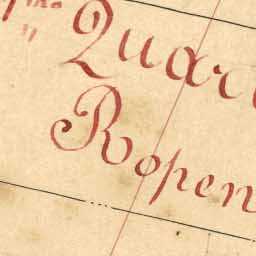 Quar
Ropen